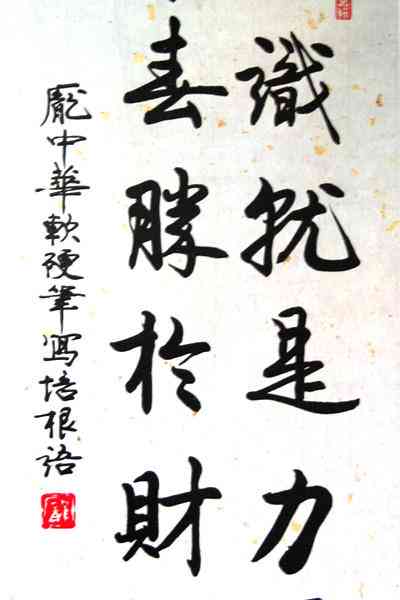 識就是力
春勝於財
龐中華軟硬筆寫培根語